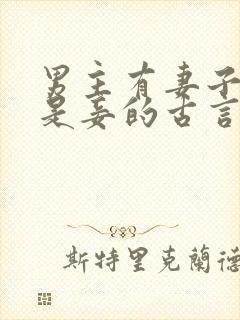 男主有妻子
是妾的古言
斯特里克蘭德